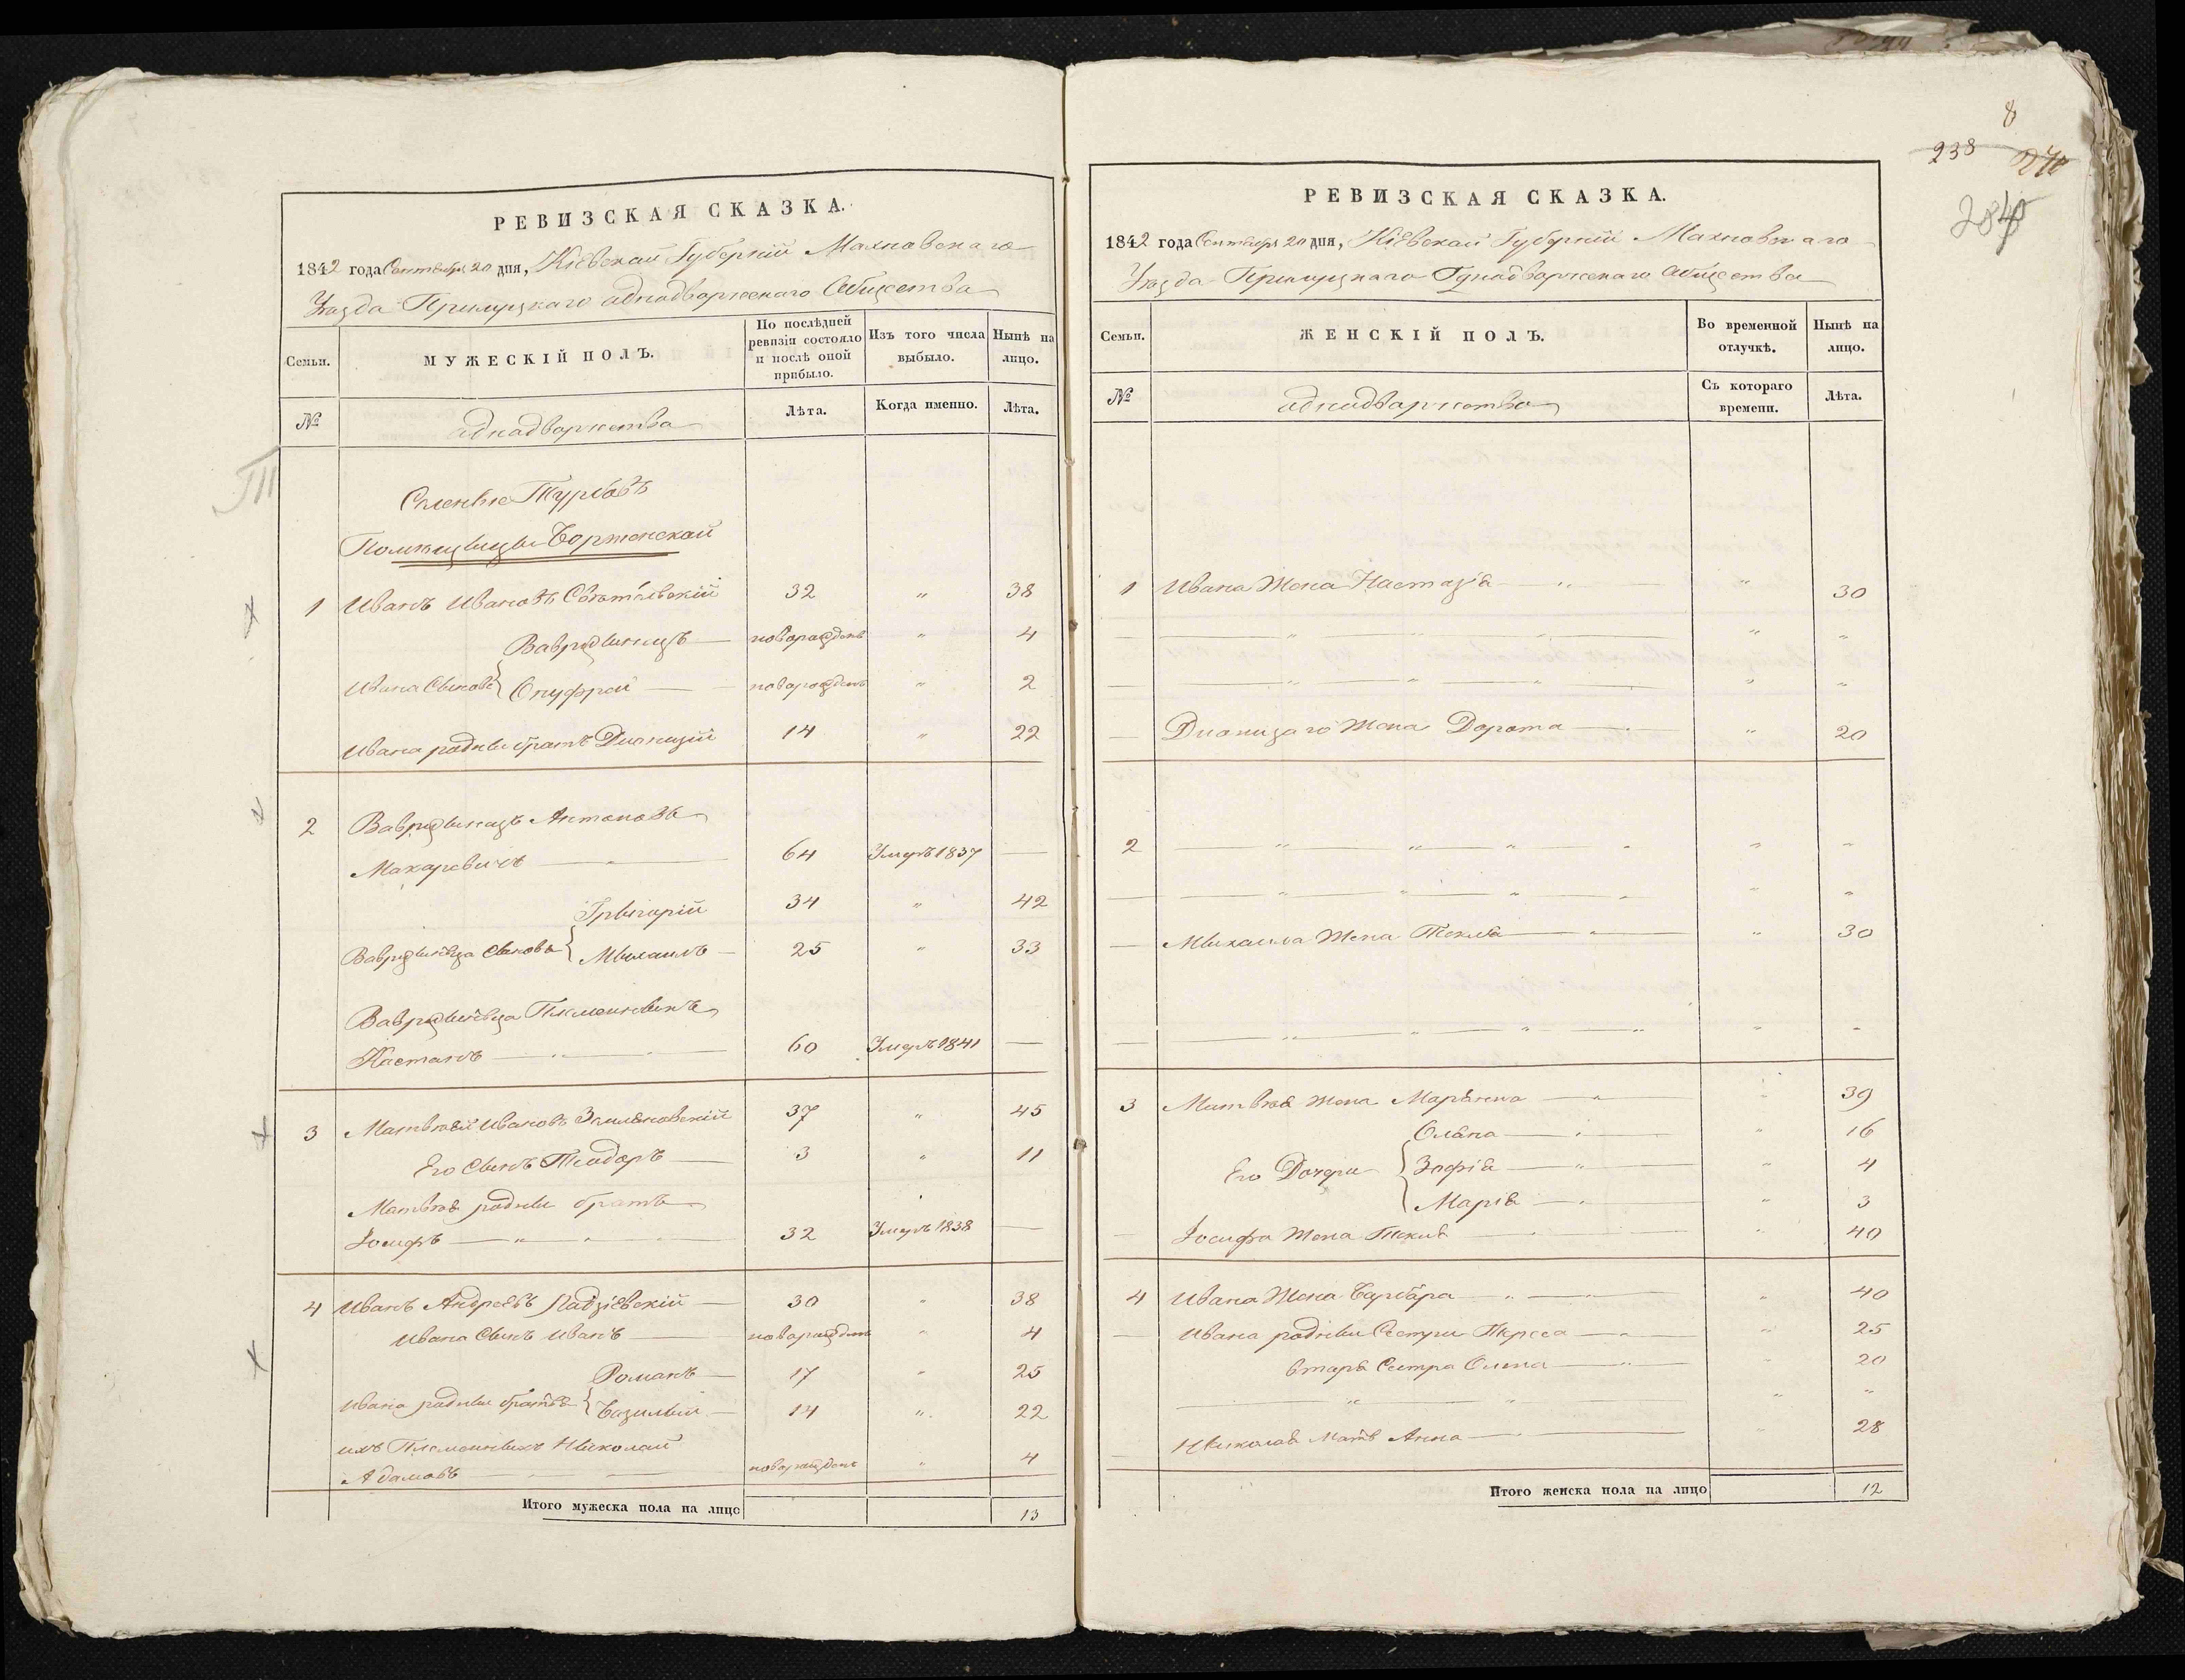 РЕВИЗСКАЯ СКАЗКА.
1842 года Сентября 20 дня, Кіевской Губерній Махновскаго
Уезда Прилуцкаго аднадворческаго Общества
Семьи.
МУЖЕСКІЙ ПОЛЪ.
По послѣдней ревизіи состояло и послѣ оной прибыло.
Изъ того числа выбыло.
Нынѣ на лицо.
№
аднадворчества
Лѣта.
Когда именно.
Лѣта.
Турбовъ
1 Иванъ Ивановъ 32 " 38
Вавржинецъ — новорожденъ " 4
Ивана Сынове Онуфрей — новорожденъ " 2
Ивана родны братъ Дионизій 14 " 22
2 Вавржинецъ Антоновъ
Макаревичъ — " — 64 Умеръ 1837 —
Григорій 34 " 42
Вавржинца Сыновя Михаилъ — 25 " 33
Вавржинца Племенникъ
Кастанъ — " — 60 Умеръ 1841 —
3 Матвей Ивановъ 37 " 45
Его Сынъ Теодоръ — 3 " 11
Матвея родны братъ
Іосифъ — " — 32 Умеръ 1838 —
4 Иванъ Андреевъ Радзіевскій — 30 " 38
Ивана Сынъ Иванъ — новорожденъ " 4
Романъ — 17 " 25
Ивана родны братья Базилій — 14 " 22
ихъ Племенникъ Николай
Адамовъ — новорожденъ " 4
Итого мужеска пола на лицо 13
8
238
270
РЕВИЗСКАЯ СКАЗКА.
1842 года Сентября 20 дня, Кіевской Губерній Махновскаго
Уезда Прилуцкаго Общества
Семьи.
ЖЕНСКІЙ ПОЛЪ.
Во временной отлучкѣ.
Нынѣ на лицо.
№
аднадворчества
Съ котораго времени.
Лѣта.
1 Ивана Жена Настазія — " — " 30
— " — " "
— " — " "
— Дионизаго Жена Дорота — " 20
2 — " — " "
— " — " "
— Михаила Жена Текля — " — " 30
— " — " "
3 Матвея Жена Маріянна — " 39
Олена — " 16
Его Дочери Зофія — " 4
Марія — " 3
Іосифа Жена Текля — " 40
4 Ивана Жена Барбара — " 40
Ивана родны Сестри Тереса — " 25
втара Сестра Олена — " 20
— " — " "
Николая Мать Анна — " 28
Итого женска пола на лицо 12